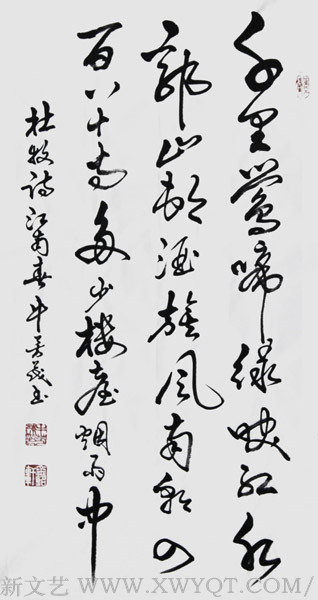 千里鶯啼綠映紅水
邨山郭酒旗風南朝四
百八十寺多少樓臺烟雨中
杜牧詩江南春牛書
新文艺 WWW.XWYQT.COM/